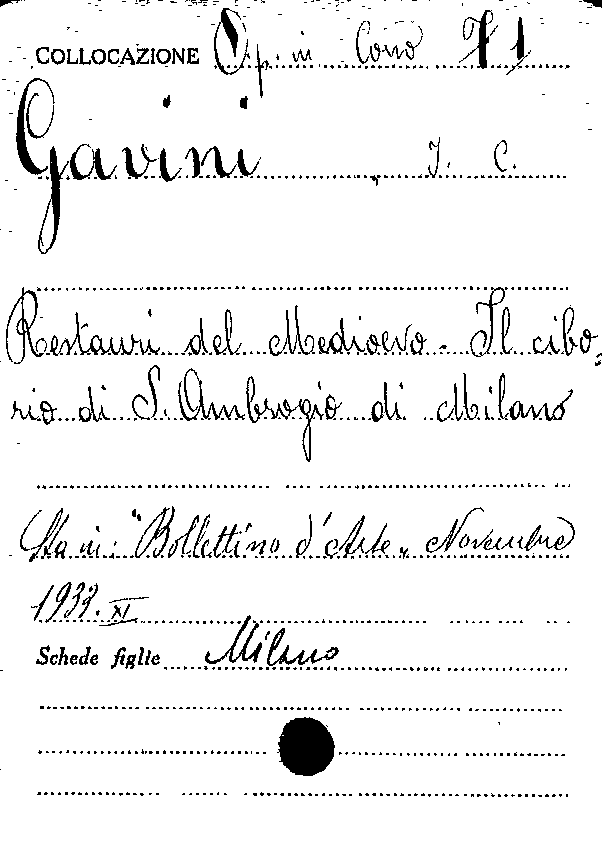 COLLOCAZIONE Op. in Cons
Gavini, I. C.
Restauri del Medioevo - Il cibo-
rio di S. Ambrogio di Milano
Sta in: "Bollettino d'Arte„ Novembre
1933. XI
Schede figlie Milano